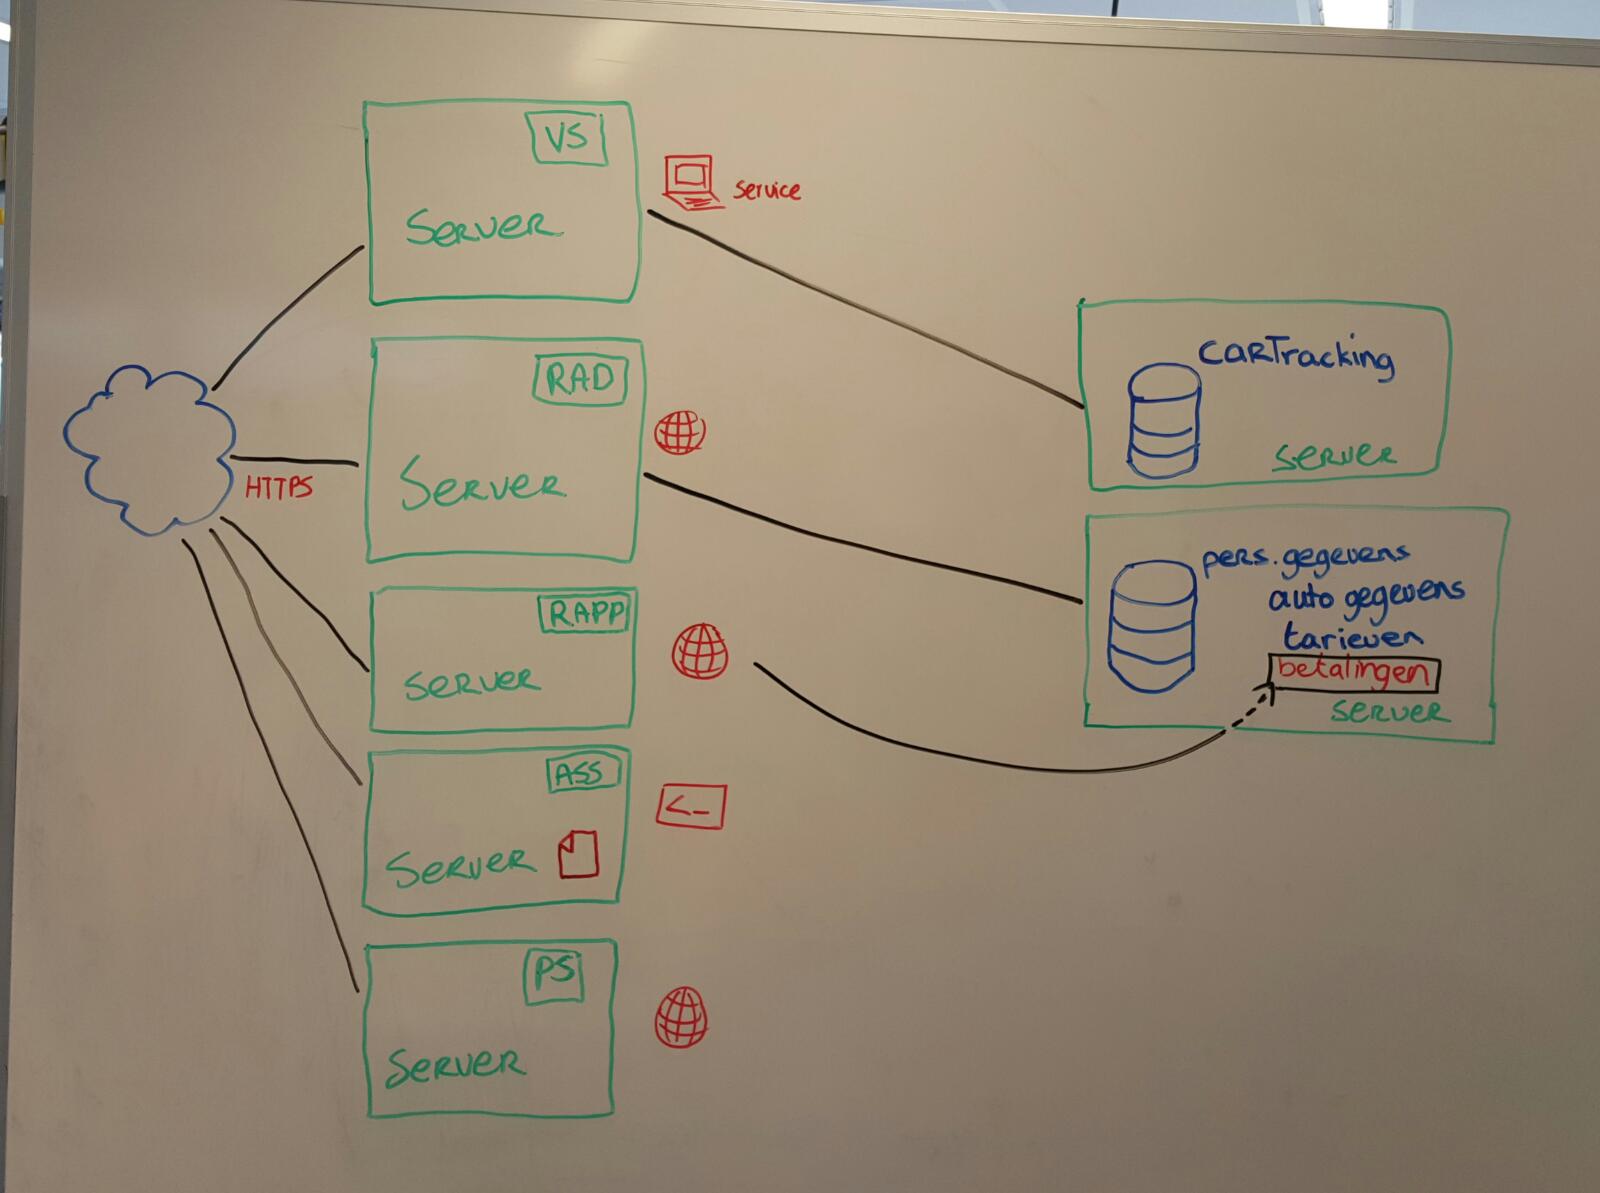 VS
Server
Service
HTTPS
RAD
Server
RAPP
Server
ASS
Server
<_
PS
Server
CARTracking
Server
pers. gegevens
auto gegevens
tarieven
betalingen
Server